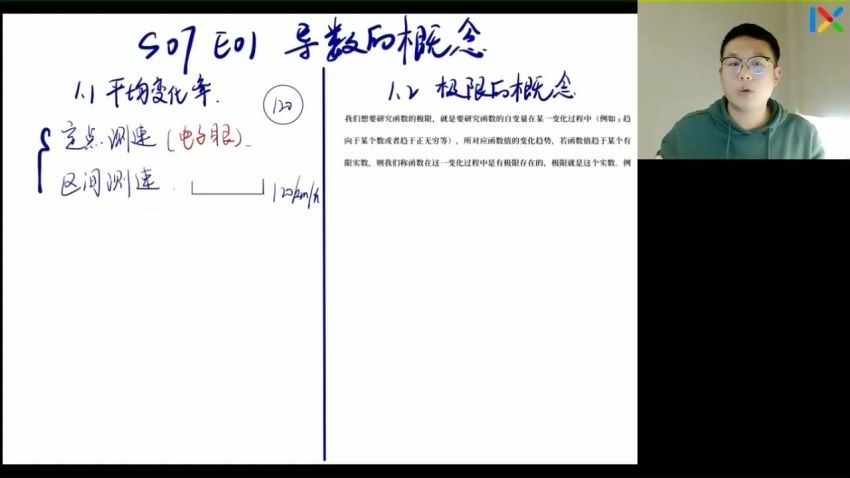 S07 E01 导数的概念
1.1 平均变化率.
120
定点测速 (电子眼).
区间测速. 120km/h
1.2 极限的概念
我们想要研究函数的极限，就是要研究函数的自变量在某一变化过程中（例如 x 趋
向于某个数或者趋于正无穷等），所对应函数值的变化趋势，若函数值趋于某个有
限实数，则我们称函数在这一变化过程中是有极限存在的，极限就是这个实数. 例